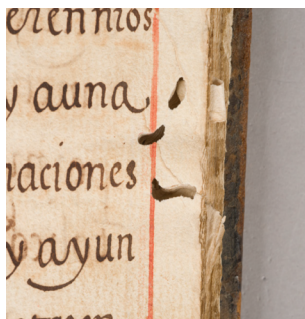 erennios
y auna
naciones
y ayun